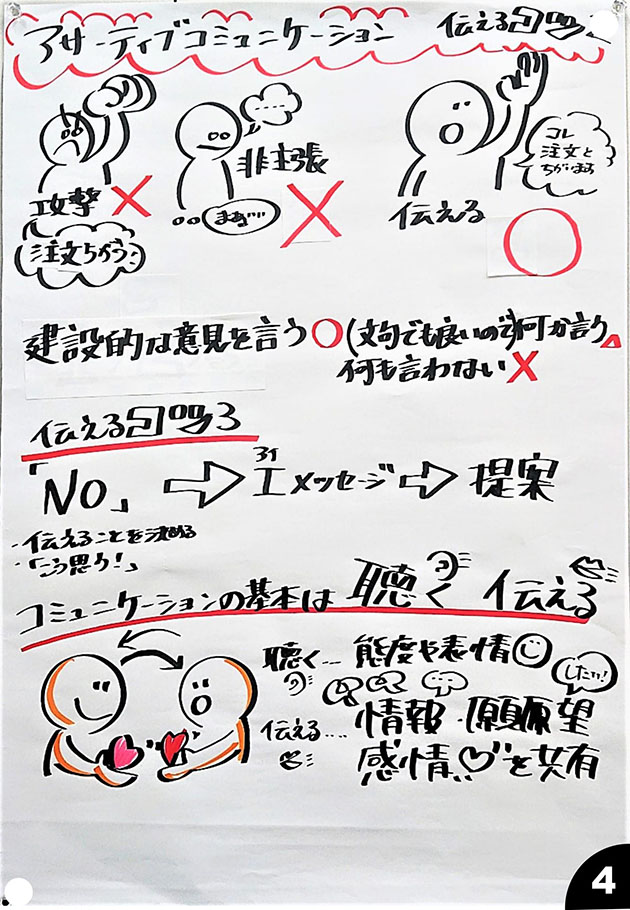 アサーティブコミュニケーション 伝える
攻撃
注文ちがう
非主張
まぁ...
コレ
注文と
ちがいます
伝える
建設的な意見を言う○(文句でも良いので何か言う△
何も言わない×
伝える
「NO」→Iメッセージ→提案
アイ
・伝えることを決める
・「こう思う!」
コミュニケーションの基本は 聴く 伝える
聴く… 態度や表情
したい!
伝える…. 情報・願望
感情 を共有
4